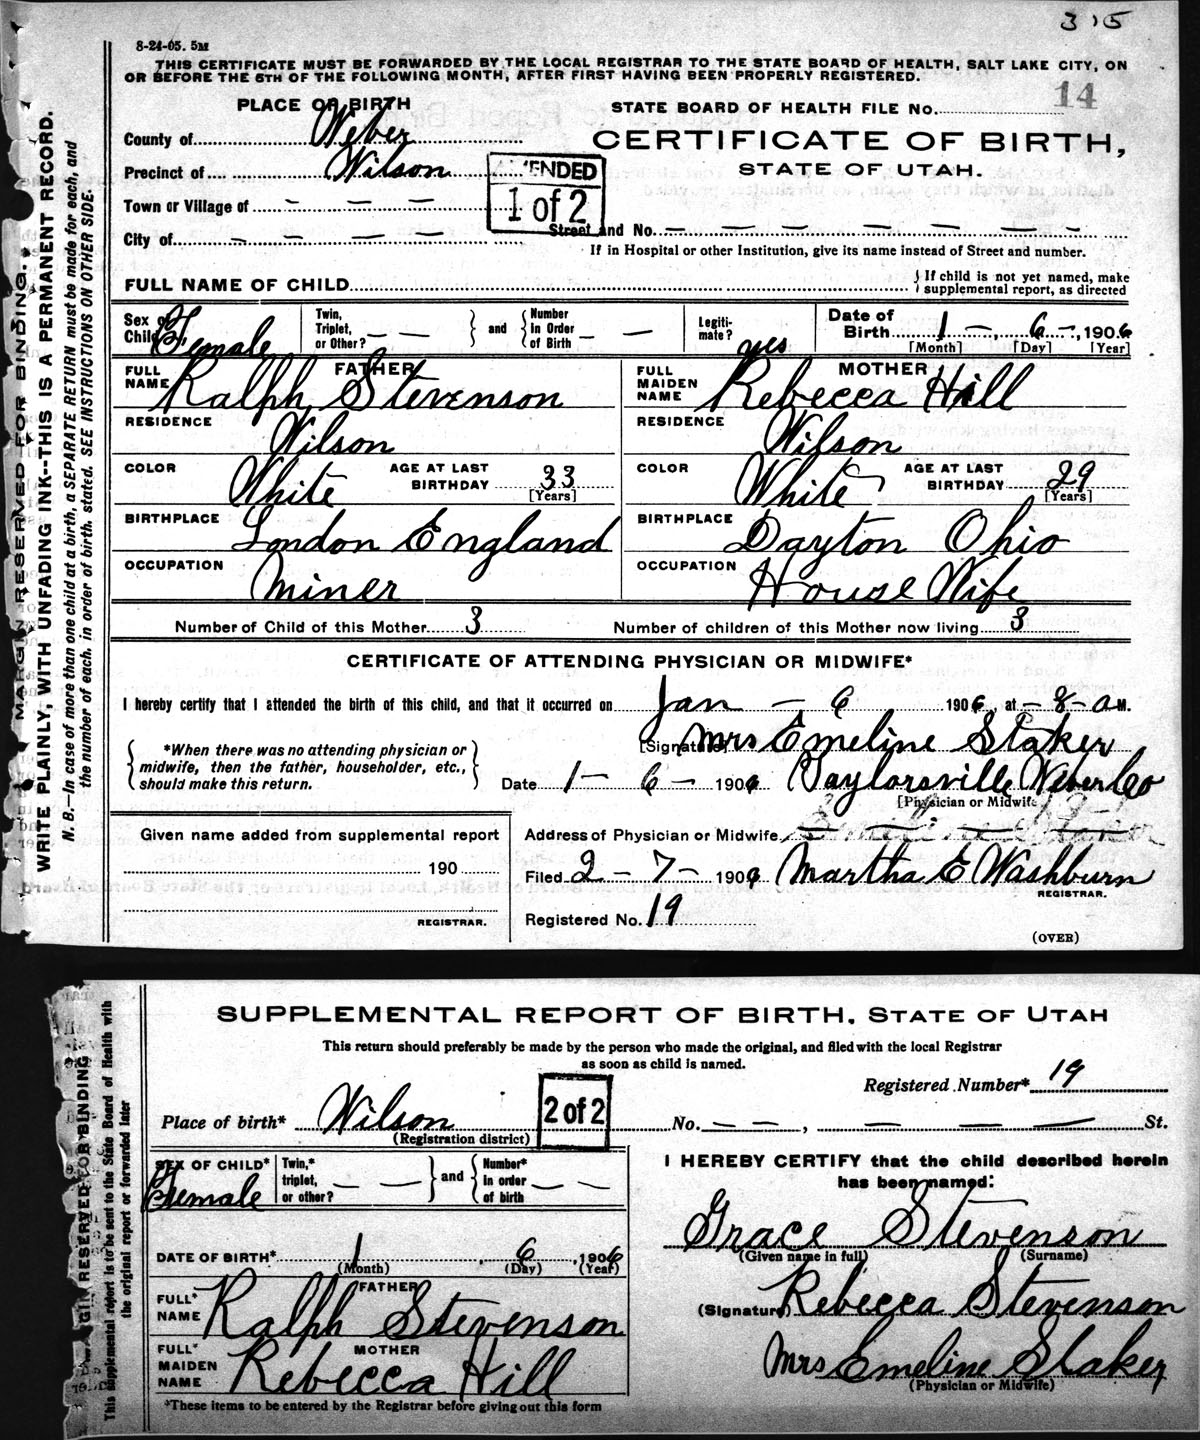 315
8-24-05. 5M
THIS CERTIFICATE MUST BE FORWARDED BY THE LOCAL REGISTRAR TO THE STATE BOARD OF HEALTH, SALT LAKE CITY, ON
OR BEFORE THE 5TH OF THE FOLLOWING MONTH, AFTER FIRST HAVING BEEN PROPERLY REGISTERED.
MARGIN RESERVED FOR BINDING.
WRITE PLAINLY, WITH UNFADING INK--THIS IS A PERMANENT RECORD.
N. B.—In case of more than one child at a birth, a SEPARATE RETURN must be made for each, and
the number of each, in order of birth, stated. SEE INSTRUCTIONS ON OTHER SIDE.
PLACE OF BIRTH
STATE BOARD OF HEALTH FILE No. 14
County of Weber
CERTIFICATE OF BIRTH,
STATE OF UTAH.
Precinct of Wilson
AMENDED
1 of 2
Town or Village of — — —
City of — — — — Street and No. — — — — — — —
If in Hospital or other Institution, give its name instead of Street and number.
FULL NAME OF CHILD
If child is not yet named, make
supplemental report, as directed
Sex of Child Female
Twin, Triplet, or Other? — — and Number in Order of Birth — —
Legitimate? yes
Date of Birth 1 —, 6 —, 1906
[Month] [Day] [Year]
FATHER
FULL NAME Ralph Stevenson
MOTHER
FULL MAIDEN NAME Rebecca Hill
RESIDENCE Wilson
RESIDENCE Wilson
COLOR White AGE AT LAST BIRTHDAY 33 [Years]
COLOR White AGE AT LAST BIRTHDAY 29 [Years]
BIRTHPLACE London England
BIRTHPLACE Dayton Ohio
OCCUPATION Miner
OCCUPATION House Wife
Number of Child of this Mother 3 Number of children of this Mother now living 3
CERTIFICATE OF ATTENDING PHYSICIAN OR MIDWIFE*
I hereby certify that I attended the birth of this child, and that it occurred on Jan — 6 1906, at — 8 — a M.
*When there was no attending physician or
midwife, then the father, householder, etc.,
should make this return.
[Signature] Mrs Emeline Staker
Date 1 — 6 — 1906 Taylorsville Weber Co
[Physician or Midwife]
Given name added from supplemental report
190
REGISTRAR.
Address of Physician or Midwife
Filed 2 — 7 — 1906 Martha E Washburn
REGISTRAR.
Registered No. 19
(OVER)
MARGIN RESERVED FOR BINDING
This supplemental report is to be sent to the State Board of Health with
the original report or forwarded later
SUPPLEMENTAL REPORT OF BIRTH, STATE OF UTAH
This return should preferably be made by the person who made the original, and filed with the local Registrar
as soon as child is named.
Registered Number* 19
2 of 2
Place of birth* Wilson No. — —, — — — St.
(Registration district)
SEX OF CHILD* Female
Twin,* triplet, or other? — — and Number* in order of birth — —
I HEREBY CERTIFY that the child described herein
has been named:
Grace Stevenson
(Given name in full) (Surname)
DATE OF BIRTH* 1 6, 1906
(Month) (Day) (Year)
FATHER
FULL* NAME Ralph Stevenson
(Signature) Rebecca Stevenson
MOTHER
FULL* MAIDEN NAME Rebecca Hill
Mrs Emeline Staker
(Physician or Midwife)
*These items to be entered by the Registrar before giving out this form